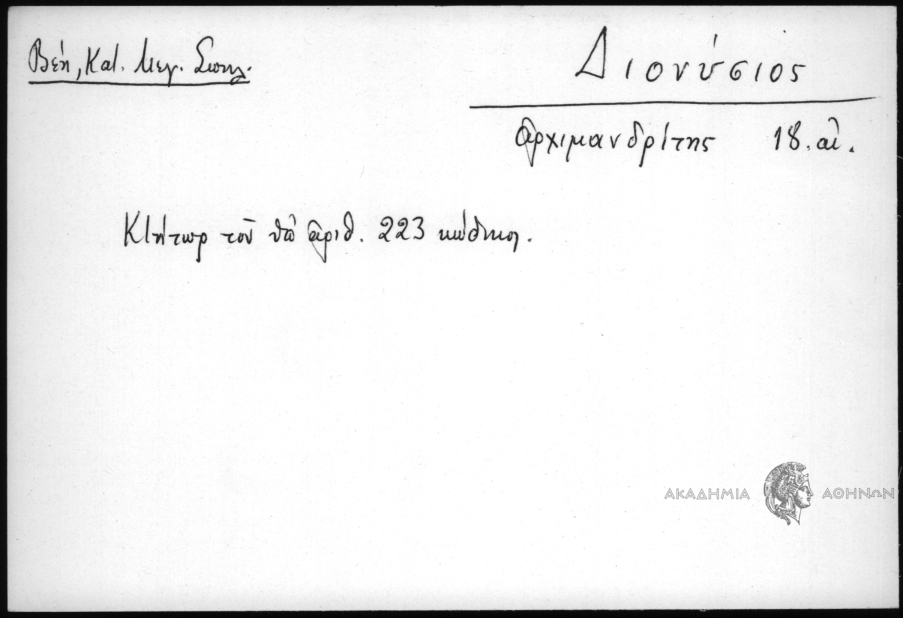 Βέη, Κατ. Μεγ. Σπηλ.
Διονύσιος
ἀρχιμανδρίτης 18. αἰ.
Κτήτωρ τοῦ ὑπ' ἀριθ. 223 κώδικος.
ΑΚΑΔΗΜΙΑ ΑΘΗΝΩΝ